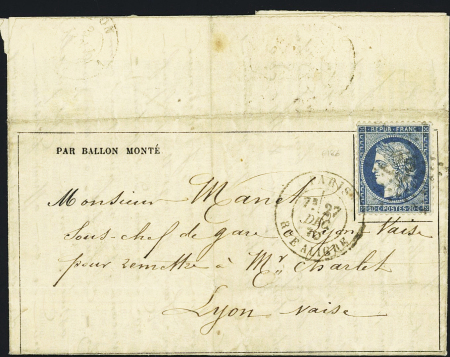 PAR BALLON MONTÉ
REPUB. FRANC.
20 C. POSTES 20 C.
PARIS
7E 27
DEC.
70
RUE ALIGRE
Monsieur Manet
Sous-chef de gare Lyon Vaise
pour remettre à Mr Charlet
Lyon vaise